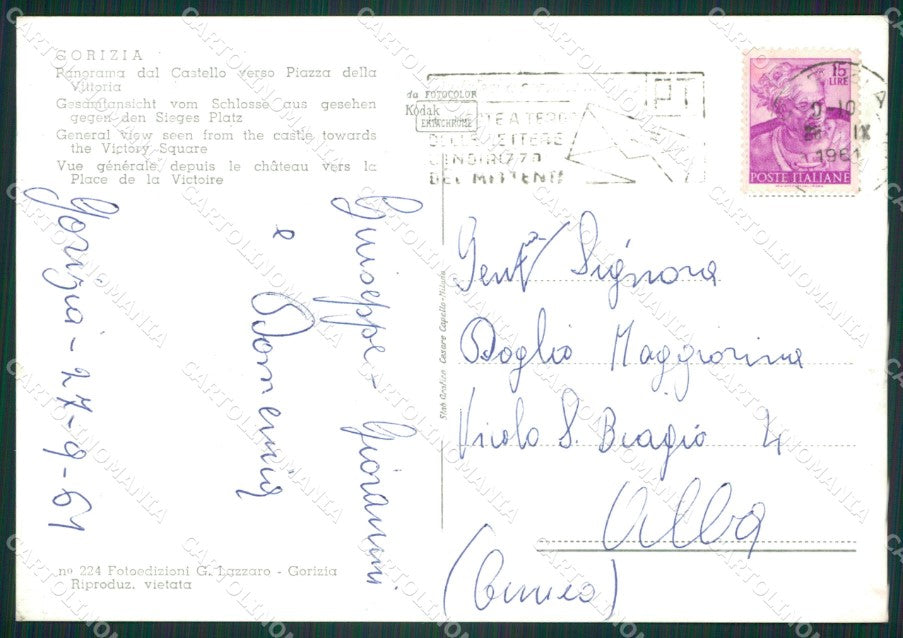 GORIZIA
Panorama dal Castello verso Piazza della
Vittoria
Gesamtansicht vom Schlosse aus gesehen
gegen den Sieges Platz
General view seen from the castle towards
the Victory Square
Vue générale depuis le château vers la
Place de la Victoire
Gorizia - 27-9-61
Giuseppe + Giovanni
e Domenica
nº 224 Fotoedizioni G. Lazzaro - Gorizia
Riproduz. vietata
Stab. Grafico Cesare Capello - Milano
da FOTOCOLOR
Kodak
EKTACHROME
A TERGO
DELLE LETTERE
L'INDIRIZZO
DEL MITTENTE
15
LIRE
IX
1961
POSTE ITALIANE
Gent.ma Signora
Boglio Maggiorina
Vicolo S. Biagio 4
Alba
(Cuneo)
CARTOLINOMANIA